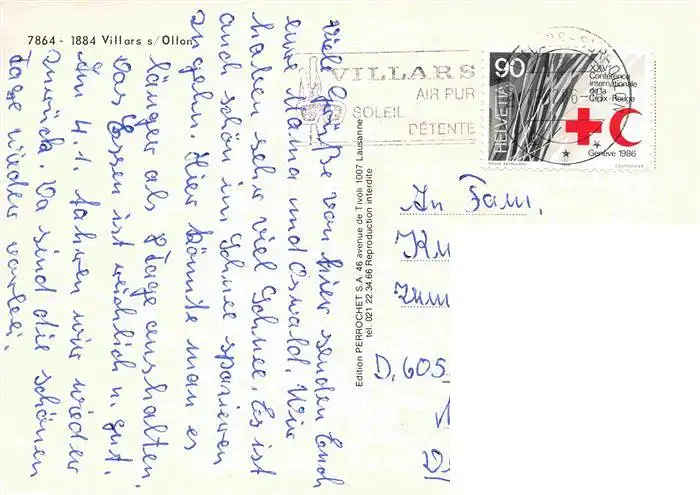 7864 - 1884 Villars s/Ollon
Viele Grüße von hier senden Euch
eure Mama und Oswald. Wir
haben sehr viel Schnee. Es ist
auch schön im Schnee spazieren
zu gehn. Hier könnte man es
länger als 8 Tage aushalten.
Das Essen ist reichlich u. gut.
Am 4.1. fahren wir wieder
zurück. Da sind die schönen
Tage wieder vorbei.
VILLARS
AIR PUR
SOLEIL
DÉTENTE
90
HELVETIA
XXVe
Conférence
internationale
de la
Croix-Rouge
Genève 1986
Edition PERROCHET S.A. 46 avenue de Tivoli 1007 Lausanne
tél. 021 22.34.66 Reproduction interdite
An Fam.
D. 605